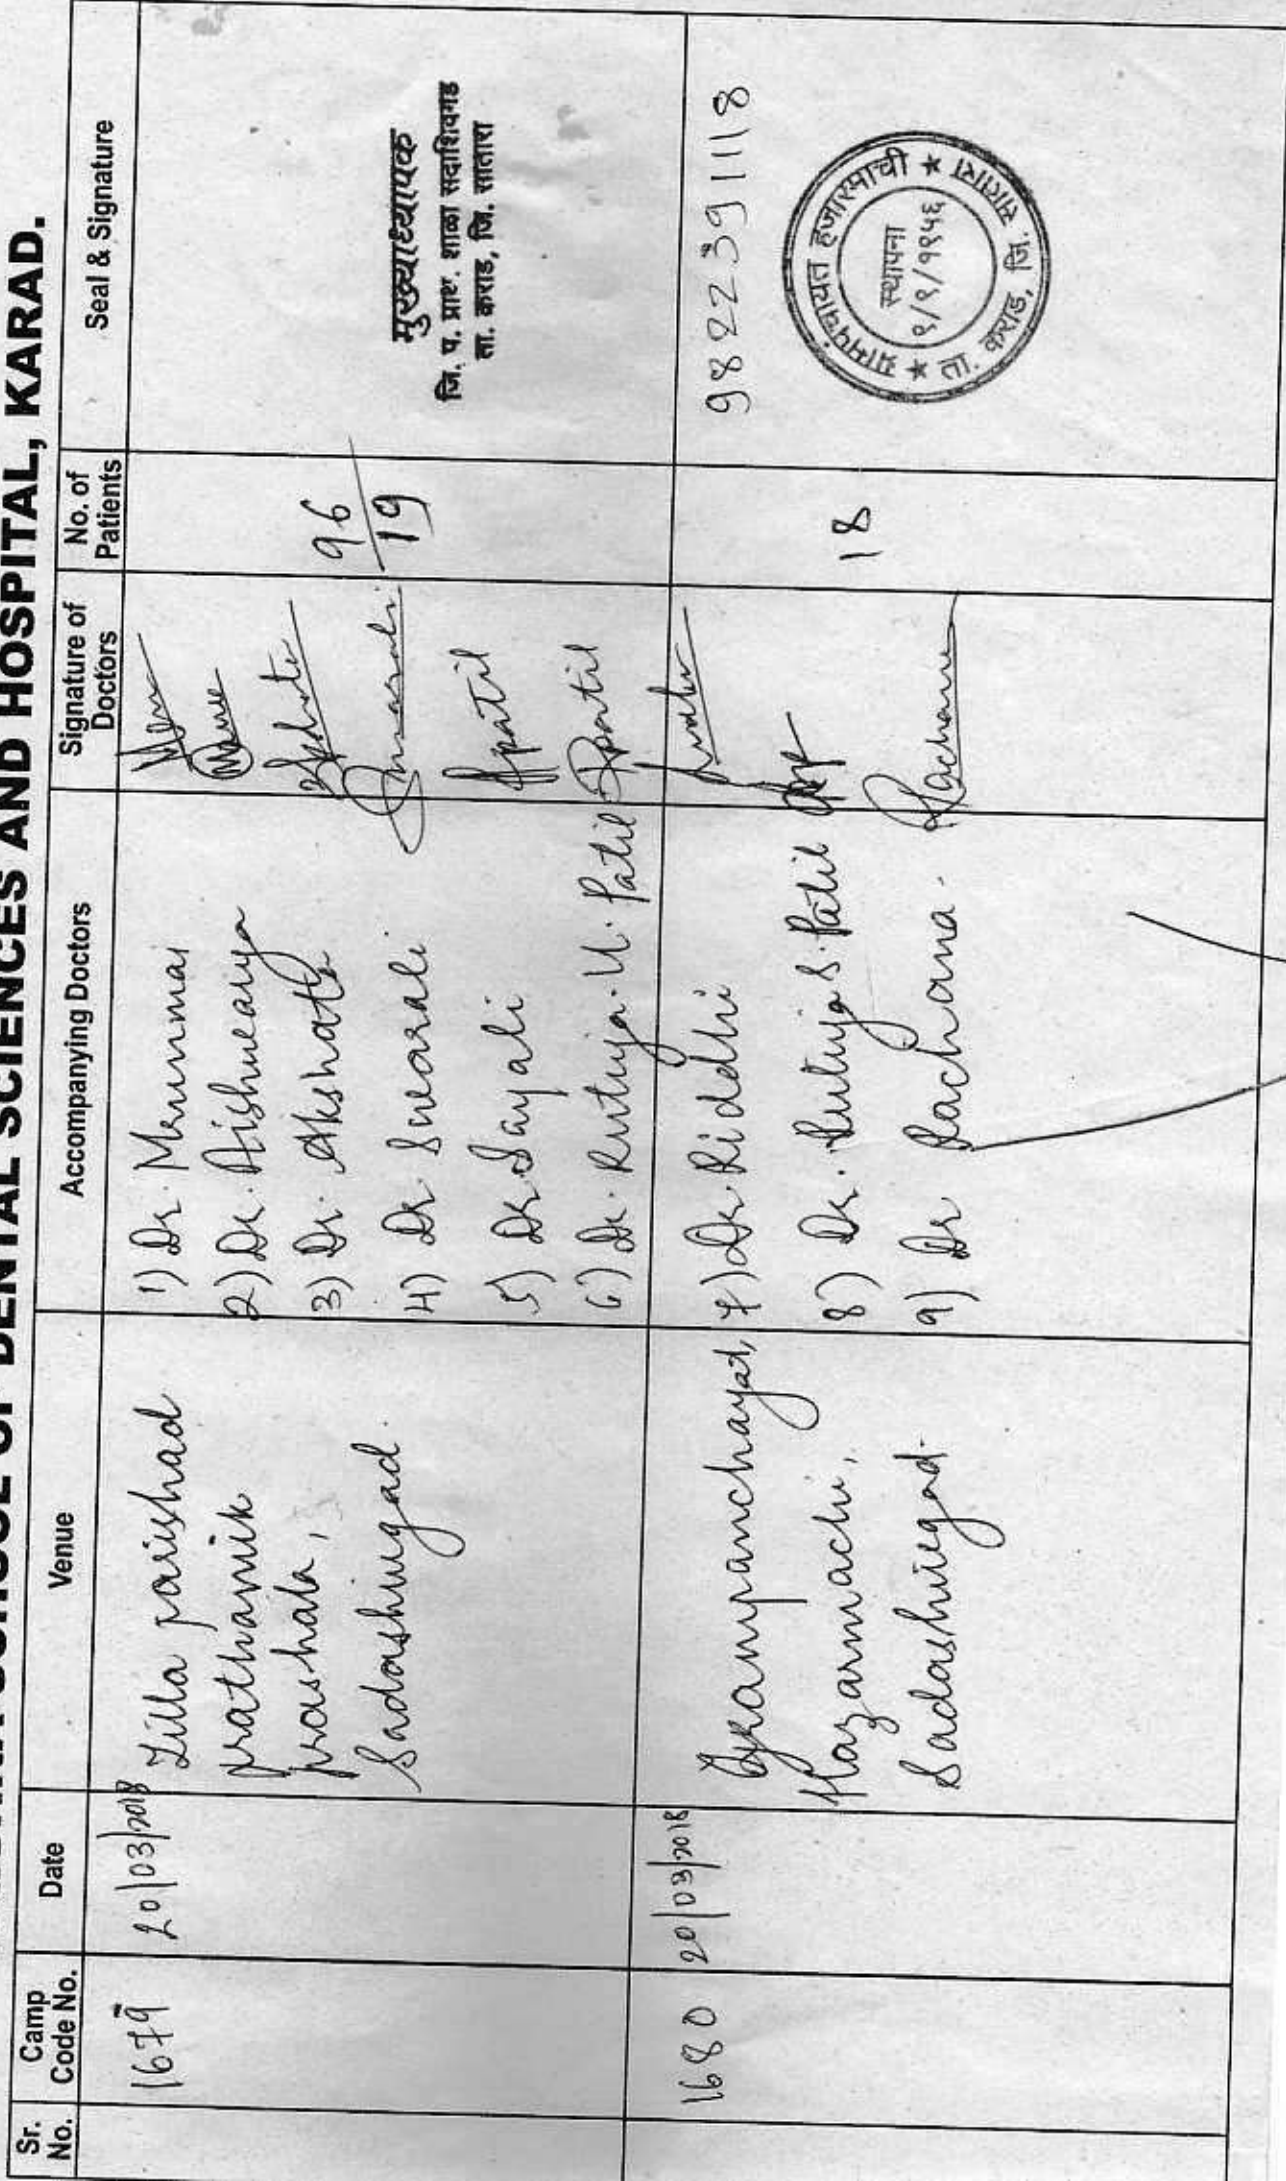 SCHOOL OF DENTAL SCIENCES AND HOSPITAL, KARAD.
Sr. No. Camp Code No. Date Venue Accompanying Doctors Signature of Doctors No. of Patients Seal & Signature
1679 20/03/2018
Zilla parishad
prathamik
prashala,
Sadashivgad.
1) Dr. Mrunmai
2) Dr. Aishwarya
3) Dr. Akshata
4) Dr Swarali
5) Dr. Sayali
6) Dr. Rutuja. U. Patil
Spatil
Rpatil
96
19
मुख्याध्यापक
जि. प. प्राथ. शाळा सदाशिवगड
ता. कराड, जि. सातारा
1680 20/03/2018
Grampanchayat,
Hazarmachi,
Sadashivgad.
7) Dr. Riddhi
8) Dr. Rutuja S. Patil
9) Dr Rachana.
Rachana
18
9822391118
ग्रामपंचायत हजारमाची
स्थापना
९/९/१९५६
ता. कराड, जि. सातारा